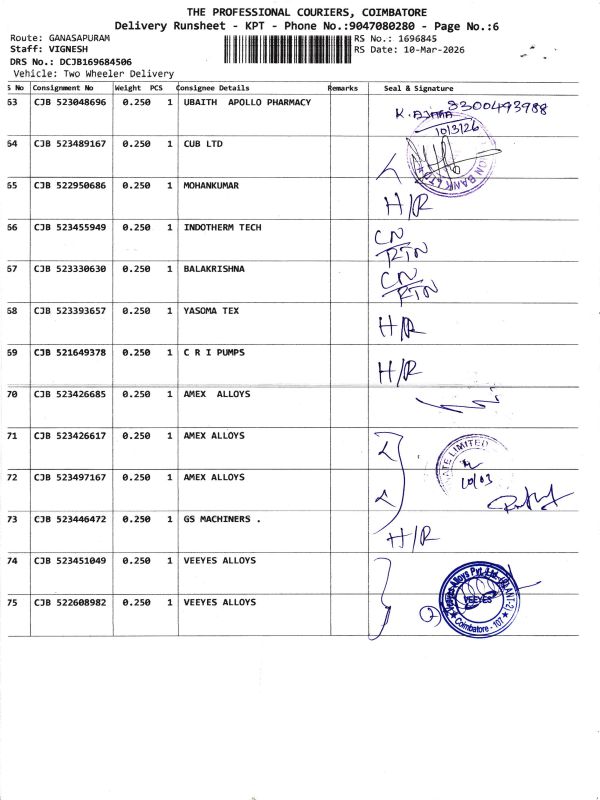 THE PROFESSIONAL COURIERS, COIMBATORE
Delivery Runsheet - KPT - Phone No.:9047080280 - Page No.:6
Route: GANASAPURAM
RS No.: 1696845
Staff: VIGNESH
RS Date: 10-Mar-2026
DRS No.: DCJB169684506
Vehicle: Two Wheeler Delivery
S No Consignment No Weight PCS Consignee Details Remarks Seal & Signature
63 CJB 523048696 0.250 1 UBAITH APOLLO PHARMACY
10/3/26
64 CJB 523489167 0.250 1 CUB LTD
65 CJB 522950686 0.250 1 MOHANKUMAR H/R
66 CJB 523455949 0.250 1 INDOTHERM TECH CN/RTN
67 CJB 523330630 0.250 1 BALAKRISHNA CN/RTN
68 CJB 523393657 0.250 1 YASOMA TEX H/R
69 CJB 521649378 0.250 1 C R I PUMPS H/R
70 CJB 523426685 0.250 1 AMEX ALLOYS
71 CJB 523426617 0.250 1 AMEX ALLOYS
LIMITED
10/03
72 CJB 523497167 0.250 1 AMEX ALLOYS
73 CJB 523446472 0.250 1 GS MACHINERS . H/R
74 CJB 523451049 0.250 1 VEEYES ALLOYS
75 CJB 522608982 0.250 1 VEEYES ALLOYS
Veeyes Alloys Pvt. Ltd.
VEEYES
Coimbatore - 107